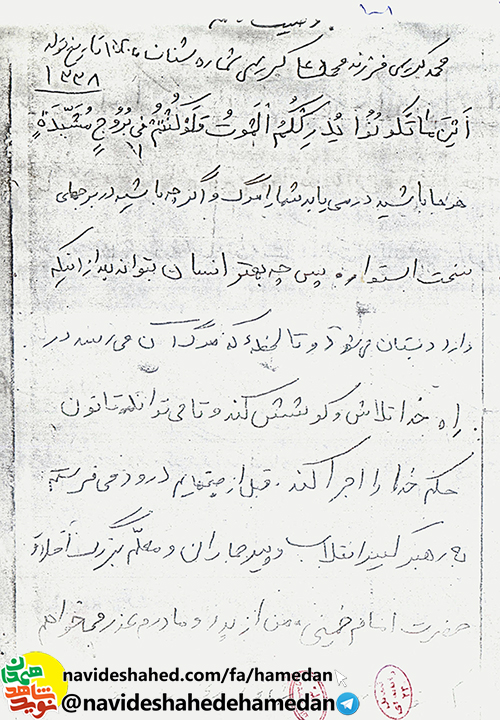 ۱-۱
وصیت نامه
محمد کریمی فرزند محمد علی کریمی شماره شناسنامه تاریخ تولد
۱۳۳۸
أَیْنَ مَا تَکُونُوا یُدْرِکُّکُمُ الْمَوْتُ وَلَوْ کُنْتُمْ فِی بُرُوجٍ مُشَیَّدَةٍ
هر جا باشید در می یابد شما را مرگ و اگر چه باشید در برجهای
سخت استوار، پس چه بهتر انسان بتواند بعد از اینکه
وارد دبستان می شود و تا لحظه ای که مرگ آن می رسد در
راه خدا تلاش و کوشش کند و تا می تواند قانون
حکم خدا را اجرا کند. قبل از درود می فرستم
به رهبر کبیر انقلاب و پیر جماران و معلم بزرگ اخلاق
حضرت امام خمینی، من از پدر و مادرم عذر می خواهم
navideshahed.com/fa/hamedan
@navideshahedehamedan
نوید شاهد
همدان